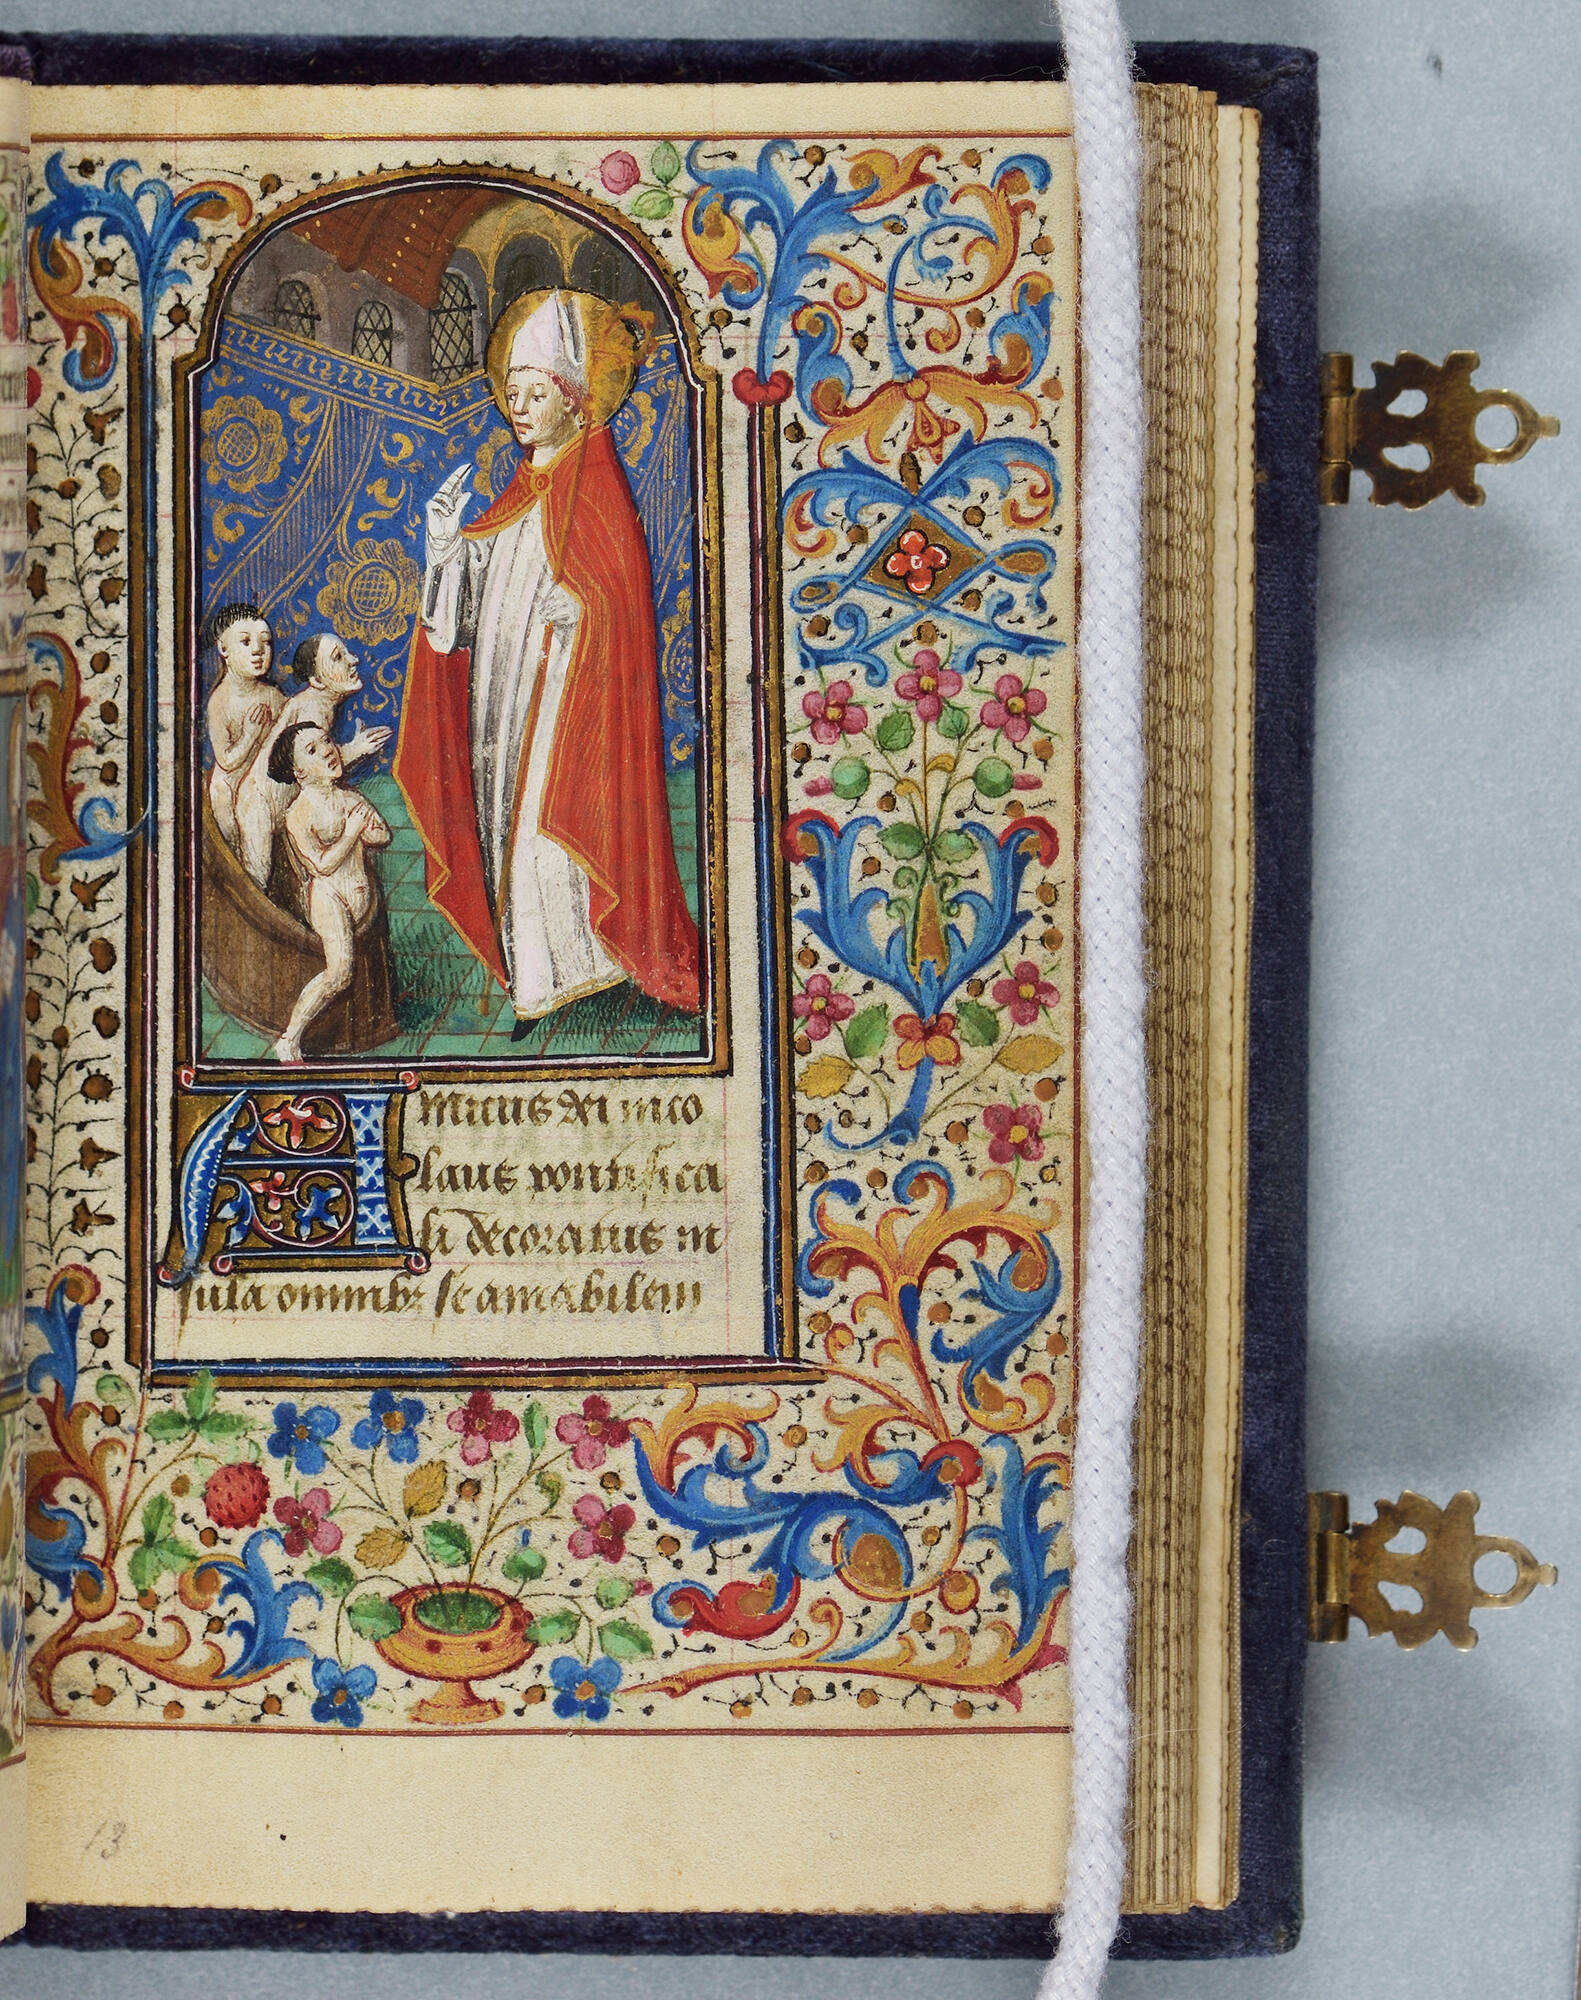 Amicus dei nico
laus pontifica
li decoratus in
sula omnibz se amabilem
13